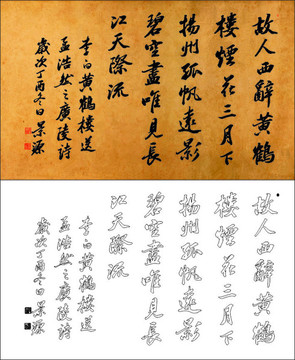 故人西辭黃鶴
樓煙花三月下
揚州孤帆遠影
碧空盡唯見長
江天際流
李白黃鶴樓送
孟浩然之廣陵詩
歲次丁酉冬日景源
故人西辭黃鶴
樓煙花三月下
揚州孤帆遠影
碧空盡唯見長
江天際流
李白黃鶴樓送
孟浩然之廣陵詩
歲次丁酉冬日景源